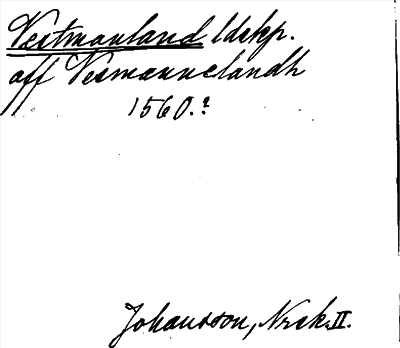 Vestmanland ldskp.
aff Vesmannelandh
1560.?
Johansson, Nrck. II.